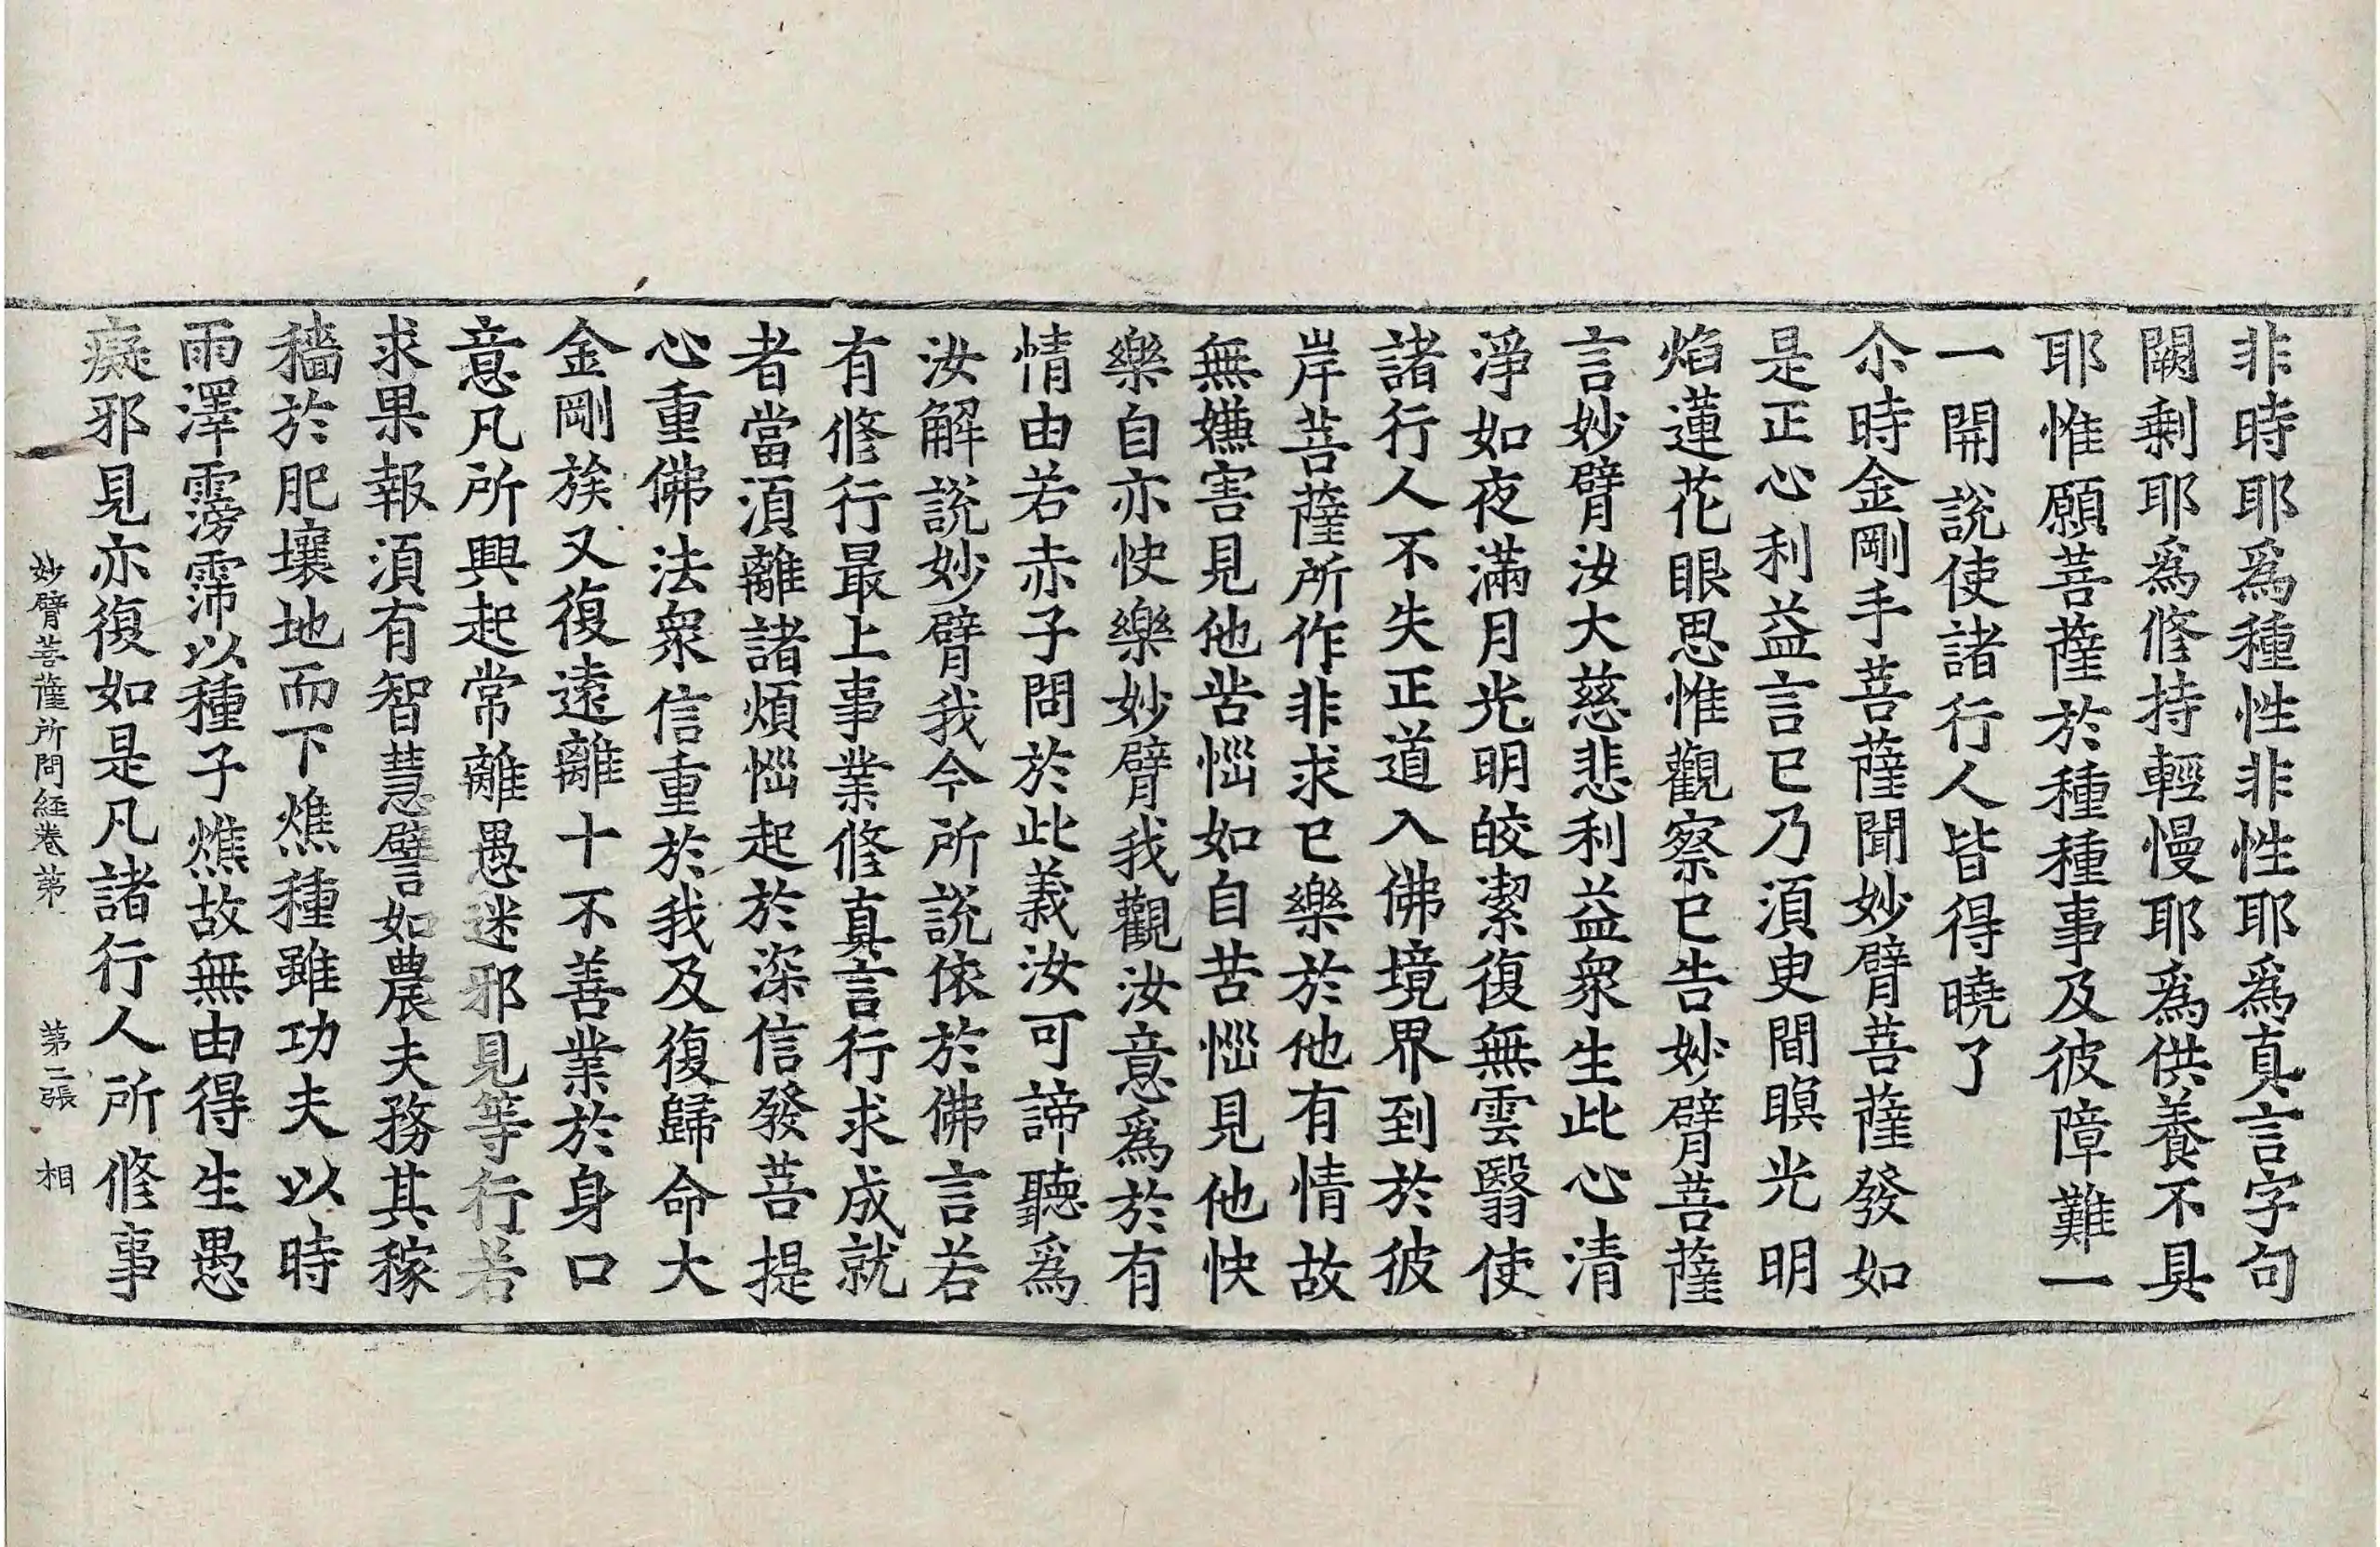 非時耶爲種性非性耶爲真言字句
闕剩耶爲修持輕慢耶爲供養不具
耶惟願菩薩於種種事及彼障難一
一開說使諸行人皆得曉了
尒時金剛手菩薩聞妙臂菩薩發如
是正心利益言已乃須臾間瞑光明
焰蓮花眼思惟觀察已告妙臂菩薩
言妙臂汝大慈悲利益衆生此心清
淨如夜滿月光明皎潔復無雲翳使
諸行人不失正道入佛境界到於彼
岸菩薩所作非求已樂於他有情故
無嫌害見他苦惱如自苦惱見他快
樂自亦快樂妙臂我觀汝意爲於有
情由若赤子問於此義汝可諦聽爲
汝解說妙臂我今所說依於佛言若
有修行最上事業修真言行求成就
者當須離諸煩惱起於深信發菩提
心重佛法衆信重於我及復歸命大
金剛族又復遠離十不善業於身口
意凡所興起常離愚迷邪見等行若
求果報須有智慧譬如農夫務其稼
穡於肥壤地而下燋種雖功夫以時
雨澤霶霈以種子燋故無由得生愚
癡邪見亦復如是凡諸行人所修事
妙臂菩薩所問經卷第一 第二張 相